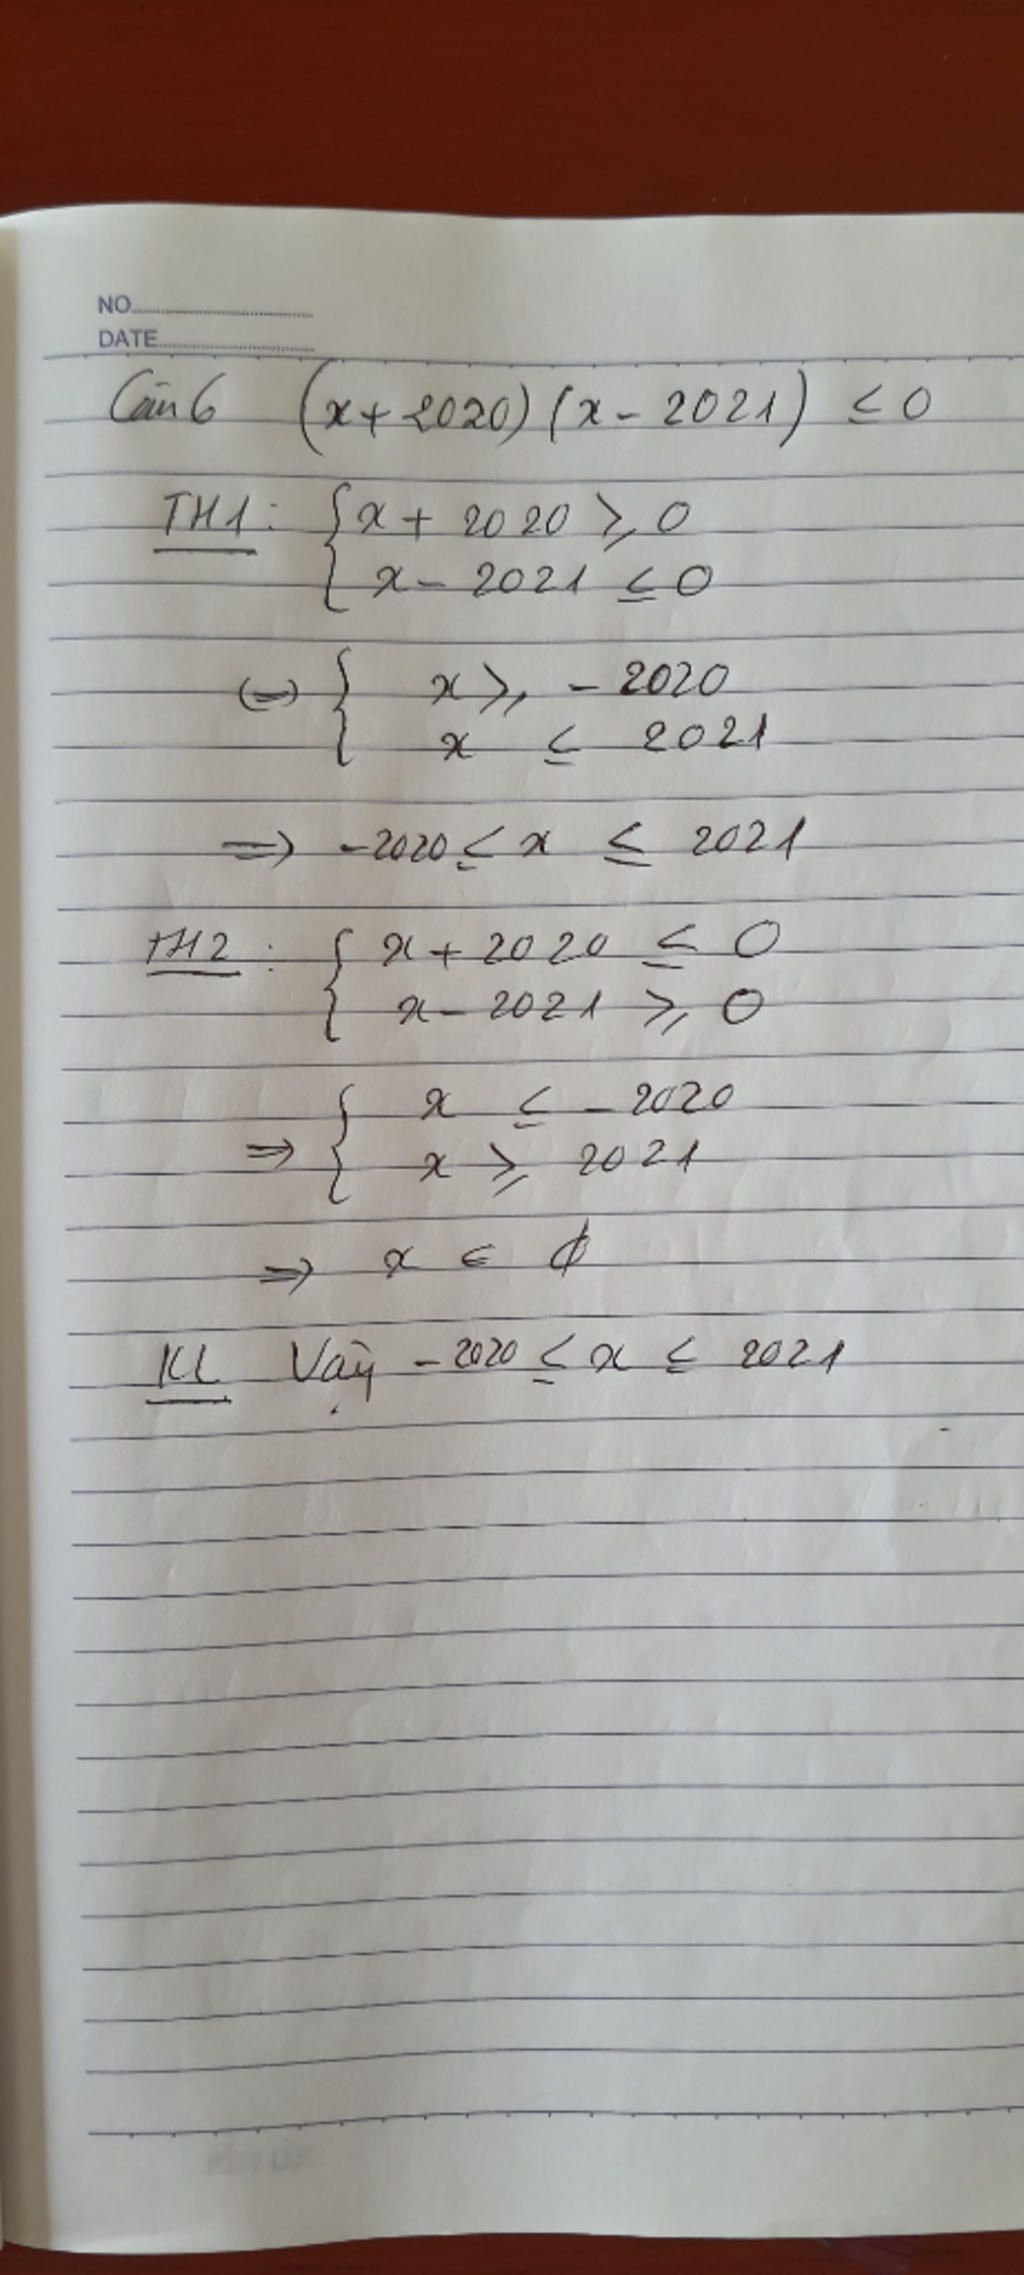 NO
DATE
Câu 6 (x + 2020) (x - 2021) ≤ 0
TH1: { x + 2020 ≥ 0
{ x - 2021 ≤ 0
(=) { x ≥ - 2020
{ x ≤ 2021
=> -2020 ≤ x ≤ 2021
TH2: { x + 2020 ≤ 0
{ x - 2021 ≥ 0
=> { x ≤ - 2020
{ x ≥ 2021
=> x ∈ ϕ
KL Vậy - 2020 ≤ x ≤ 2021